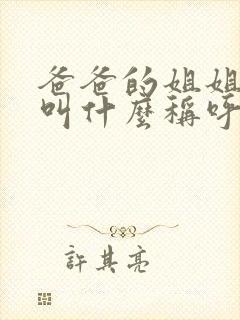 爸爸的姐姐
叫什麼稱呼
許其亮